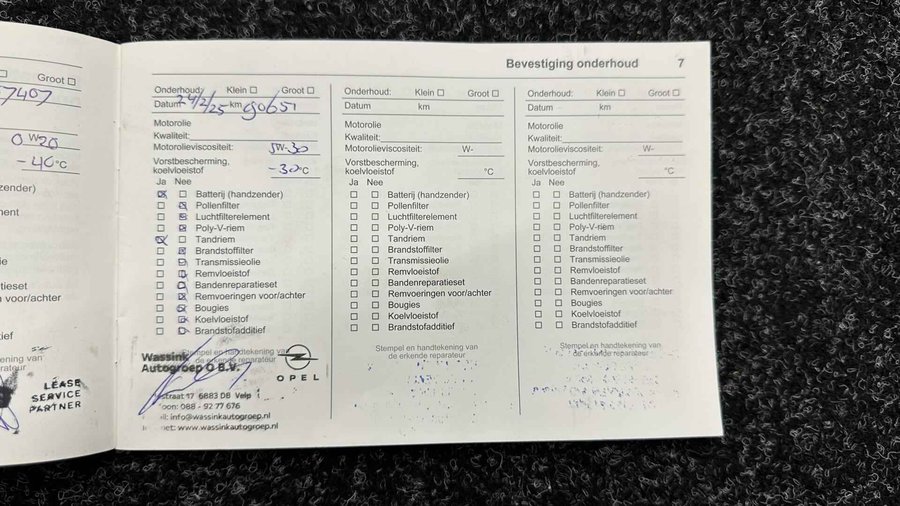 Groot
7407
0 W 20
-40 °C
zender)
ment
ie
atieset
n voor/achter
tief
ening van
rateur
LEASE
SERVICE
PARTNER
Bevestiging onderhoud 7
Onderhoud: Klein Groot
Datum 24/2/25 km 90651
Motorolie
Kwaliteit:
Motorolieviscositeit: 5W-30
Vorstbescherming,
koelvloeistof -30°C
Ja Nee
Batterij (handzender)
Pollenfilter
Luchtfilterelement
Poly-V-riem
Tandriem
Brandstoffilter
Transmissieolie
Remvloeistof
Bandenreparatieset
Remvoeringen voor/achter
Bougies
Koelvloeistof
Brandstofadditief
Stempel en handtekening van
de erkende reparateur
Wassink
Autogroep O B.V.
OPEL
straat 17 6883 DB Velp
oon: 088 - 92 77 676
il: info@wassinkautogroep.nl
net: www.wassinkautogroep.nl
Onderhoud: Klein Groot
Datum km
Motorolie
Kwaliteit:
Motorolieviscositeit: W-
Vorstbescherming,
koelvloeistof °C
Ja Nee
Batterij (handzender)
Pollenfilter
Luchtfilterelement
Poly-V-riem
Tandriem
Brandstoffilter
Transmissieolie
Remvloeistof
Bandenreparatieset
Remvoeringen voor/achter
Bougies
Koelvloeistof
Brandstofadditief
Stempel en handtekening van
de erkende reparateur
Onderhoud: Klein Groot
Datum km
Motorolie
Kwaliteit:
Motorolieviscositeit: W-
Vorstbescherming,
koelvloeistof °C
Ja Nee
Batterij (handzender)
Pollenfilter
Luchtfilterelement
Poly-V-riem
Tandriem
Brandstoffilter
Transmissieolie
Remvloeistof
Bandenreparatieset
Remvoeringen voor/achter
Bougies
Koelvloeistof
Brandstofadditief
Stempel en handtekening van
de erkende reparateur